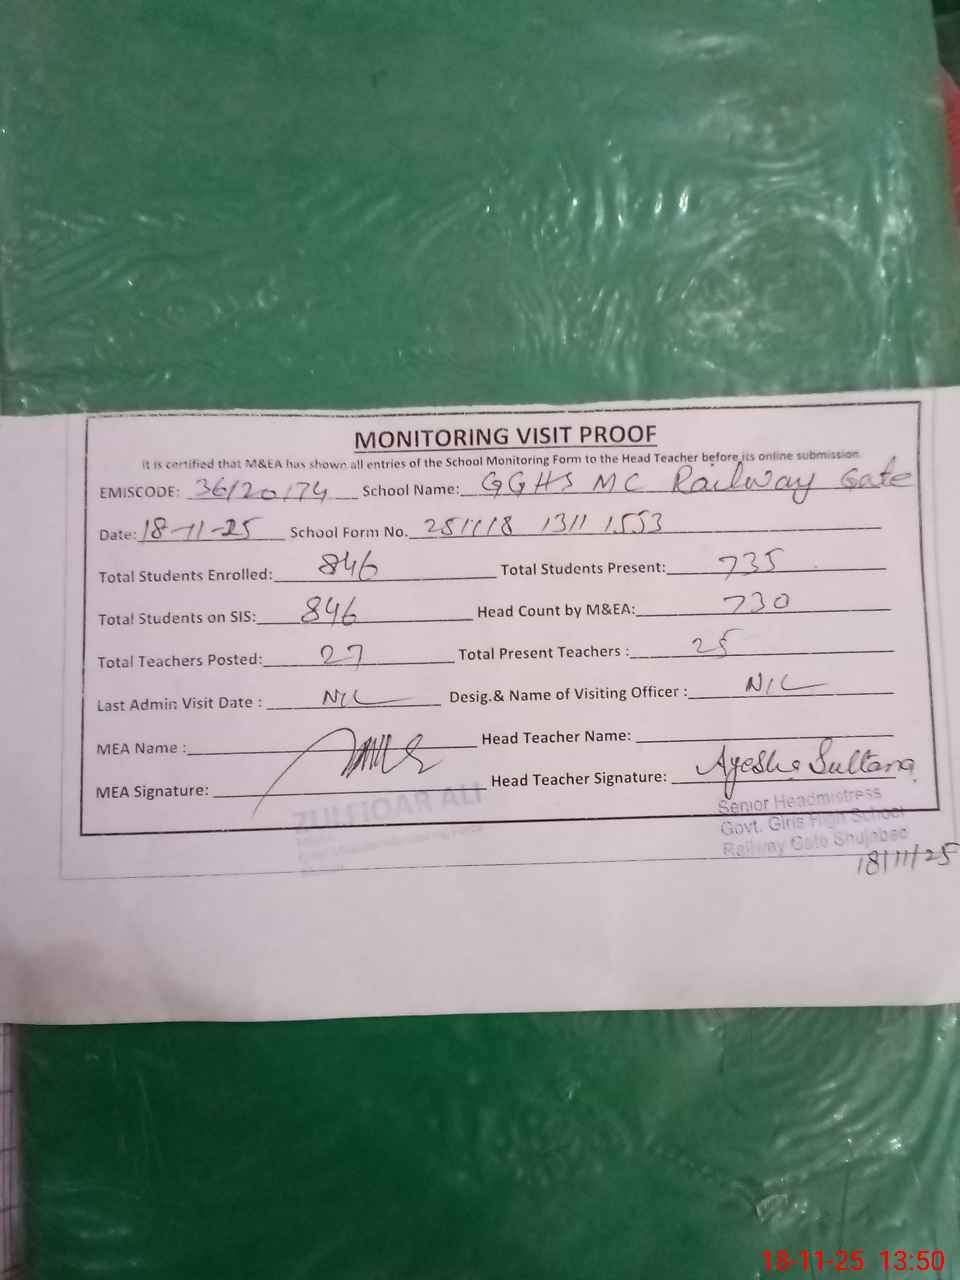 MONITORING VISIT PROOF
It is certified that M&EA has shown all entries of the School Monitoring Form to the Head Teacher before its online submission
EMISCODE: 36120174 School Name: GGHS MC Railway Gate
Date: 18-11-25 School Form No. 251118 1311 1553
Total Students Enrolled: 846 Total Students Present: 735
Total Students on SIS: 846 Head Count by M&EA: 730
Total Teachers Posted: 27 Total Present Teachers : 25
Last Admin Visit Date : NIL Desig.& Name of Visiting Officer : NIL
MEA Name : Head Teacher Name:
MEA Signature: Head Teacher Signature: Ayesha Sultana
ZULFIQAR ALI
Senior Headmistress
Govt. Girls High School
Railway Gate Shujabad
18/11/25
18-11-25 13:50